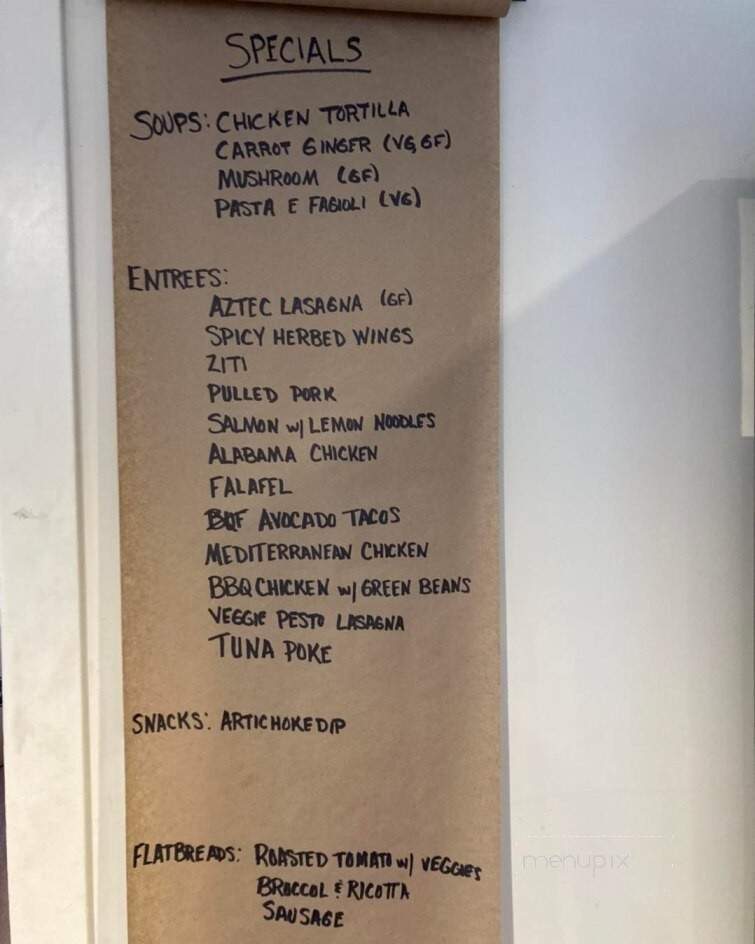 SPECIALS
SOUPS: CHICKEN TORTILLA
CARROT GINGER (VG, GF)
MUSHROOM (GF)
PASTA E FAGIOLI (VG)
ENTREES:
AZTEC LASAGNA (GF)
SPICY HERBED WINGS
ZITI
PULLED PORK
SALMON w/ LEMON NOODLES
ALABAMA CHICKEN
FALAFEL
AVOCADO TACOS
MEDITERRANEAN CHICKEN
BBQ CHICKEN w/ GREEN BEANS
VEGGIE PESTO LASAGNA
TUNA POKE
SNACKS: ARTICHOKE DIP
FLATBREADS: ROASTED TOMATO w/ VEGGIES
BROCCOL & RICOTTA
SAUSAGE
menupix